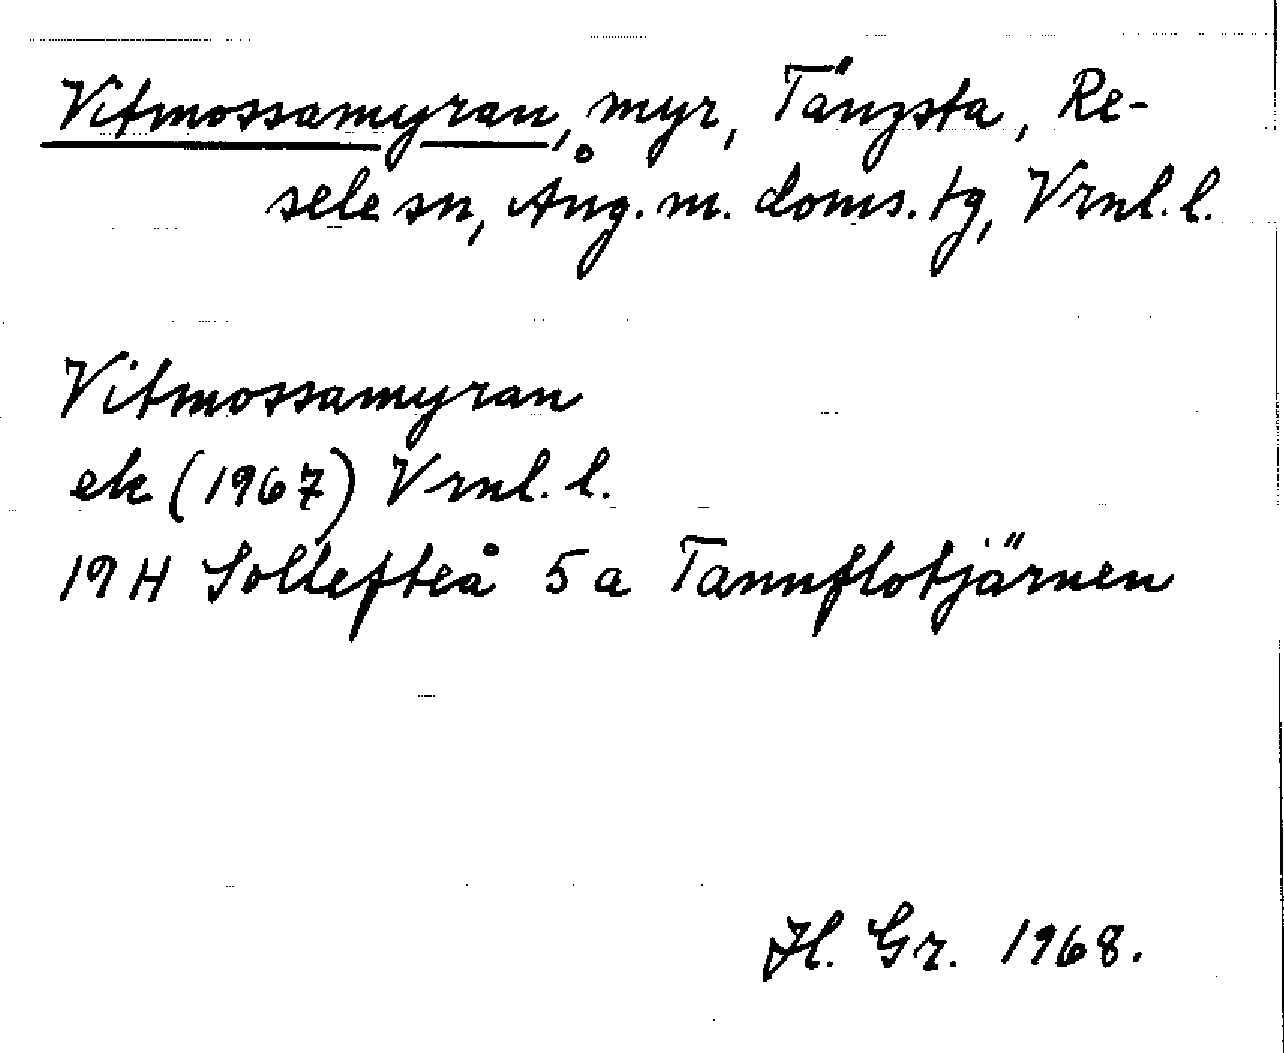 Vitmossamyran, myr, Tängsta, Re-
sele sn, Ång. m. doms. tg, Vrnl. l.
Vitmossamyran
ek (1967) Vrnl. l.
19 H Sollefteå 5 a Tannflotjärnen
Hl. Gr. 1968.